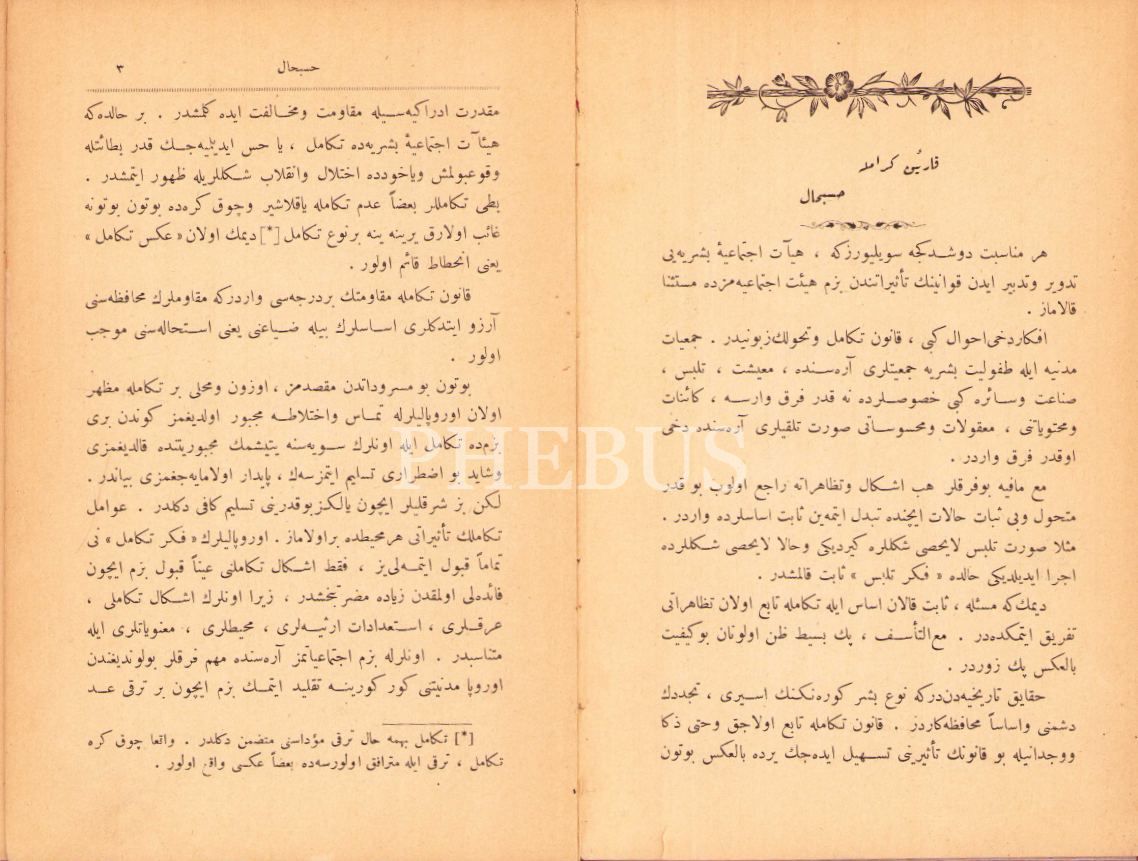 قارئين كرامله
حسبحال
هر مناسبت دوشدكجه سويليورزكه ، هيآت اجتماعيهٔ بشريه‌يى
تدوير وتدبير ايدن قوانينك تأثيراتندن بزم هيئت اجتماعيه‌مزده مستثنا
قالاماز .
افكاردخى احوال كبى ، قانون تكامل وتحولك زبونيدر . جمعيات
مدنيه ايله طفوليت بشريه جمعيتلرى آره‌سنده ، معيشت ، تلبس ،
صناعت وسائره كبى خصوصلرده نه قدر فرق وارسه ، كائنات
ومحتوياتنى ، معقولات ومحسوساتى صورت تلقيلرى آره‌سنده دخى
اوقدر فرق واردر .
مع مافيه بوفرقلر هب اشكال وتظاهراته راجع اولوب بو قدر
متحول وبى ثبات حالات ايچنده تبدل ايتمه‌ين ثابت اساسلرده واردر .
مثلا صورت تلبس لايحصى شكللره كيرديكى وحالا لايحصى شكللرده
اجرا ايديلديكى حالده « فكر تلبس » ثابت قالمشدر .
ديمك كه مسئله ، ثابت قالان اساس ايله تكامله تابع اولان تظاهراتى
تفريق ايتمكده‌در . مع‌التأسف ، پك بسيط ظن اولونان بوكيفيت
بالعكس پك زوردر .
حقايق تاريخيه‌دن‌دركه نوع بشر كوره‌نكنك اسيرى ، تجددك
دشمنى واساساً محافظه‌كاردر . قانون تكامله تابع اولاجق وحتى ذكا
ووجدانيله بو قانونك تأثيرينى تسهيل ايده‌جك يرده بالعكس بوتون
حسبحال
٣
مقدرت ادراكيه‌سيله مقاومت ومخالفت ايده كلمشدر . بر حالده‌كه
هيئآت اجتماعيهٔ بشريه‌ده تكامل ، يا حس ايديلميه‌جك قدر بطائتله
وقوعبولمش وياخودده اختلال وانقلاب شكللريله ظهور ايتمشدر .
بطى تكامللر بعضاً عدم تكامله ياقلاشير وچوق كره‌ده بوتون بوتونه
غائب اولارق يرينه ينه برنوع تكامل [*] ديمك اولان « عكس تكامل »
يعنى انحطاط قائم اولور .
قانون تكامله مقاومتك بردرجه‌سى واردركه مقاوملرك محافظه‌سنى
آرزو ايتدكلرى اساسلرك بيله ضياعنى يعنى استحاله‌سنى موجب
اولور .
بوتون بو مسروداتدن مقصدمز ، اوزون ومحلى بر تكامله مظهر
اولان اوروپاليلرله تماس واختلاطه مجبور اولديغمز كوندن برى
بزم‌ده تكامل ايله اونلرك سويه‌سنه يتيشمك مجبوريتنده قالديغمزى
وشايد بو اضطرارى تسليم ايتمزسه‌ك ، پايدار اولامايه‌جغمزى بياندر .
لكن بز شرقليلر ايچون يالكزبوقدرينى تسليم كافى دكلدر . عوامل
تكاملك تأثيراتى هرمحيطده براولاماز . اوروپاليلرك « فكر تكامل » نى
تماماً قبول ايتمه‌لى‌يز ، فقط اشكال تكاملنى عيناً قبول بزم ايچون
فائده‌لى اولمقدن زياده مضرتبخشدر ، زيرا اونلرك اشكال تكاملى ،
عرقلرى ، استعدادات ارثيه‌لرى ، محيطلرى ، معنوياتلرى ايله
متناسبدر . اونلرله بزم اجتماعياتمز آره‌سنده مهم فرقلر بولونديغندن
اوروپا مدنيتنى كور كورينه تقليد ايتمك بزم ايچون بر ترقى عد
[*] تكامل بهمه حال ترقى مؤداسنى متضمن دكلدر . واقعا چوق كره
تكامل ، ترقى ايله مترافق اولورسه‌ده بعضاً عكسى واقع اولور .
PHEBUS